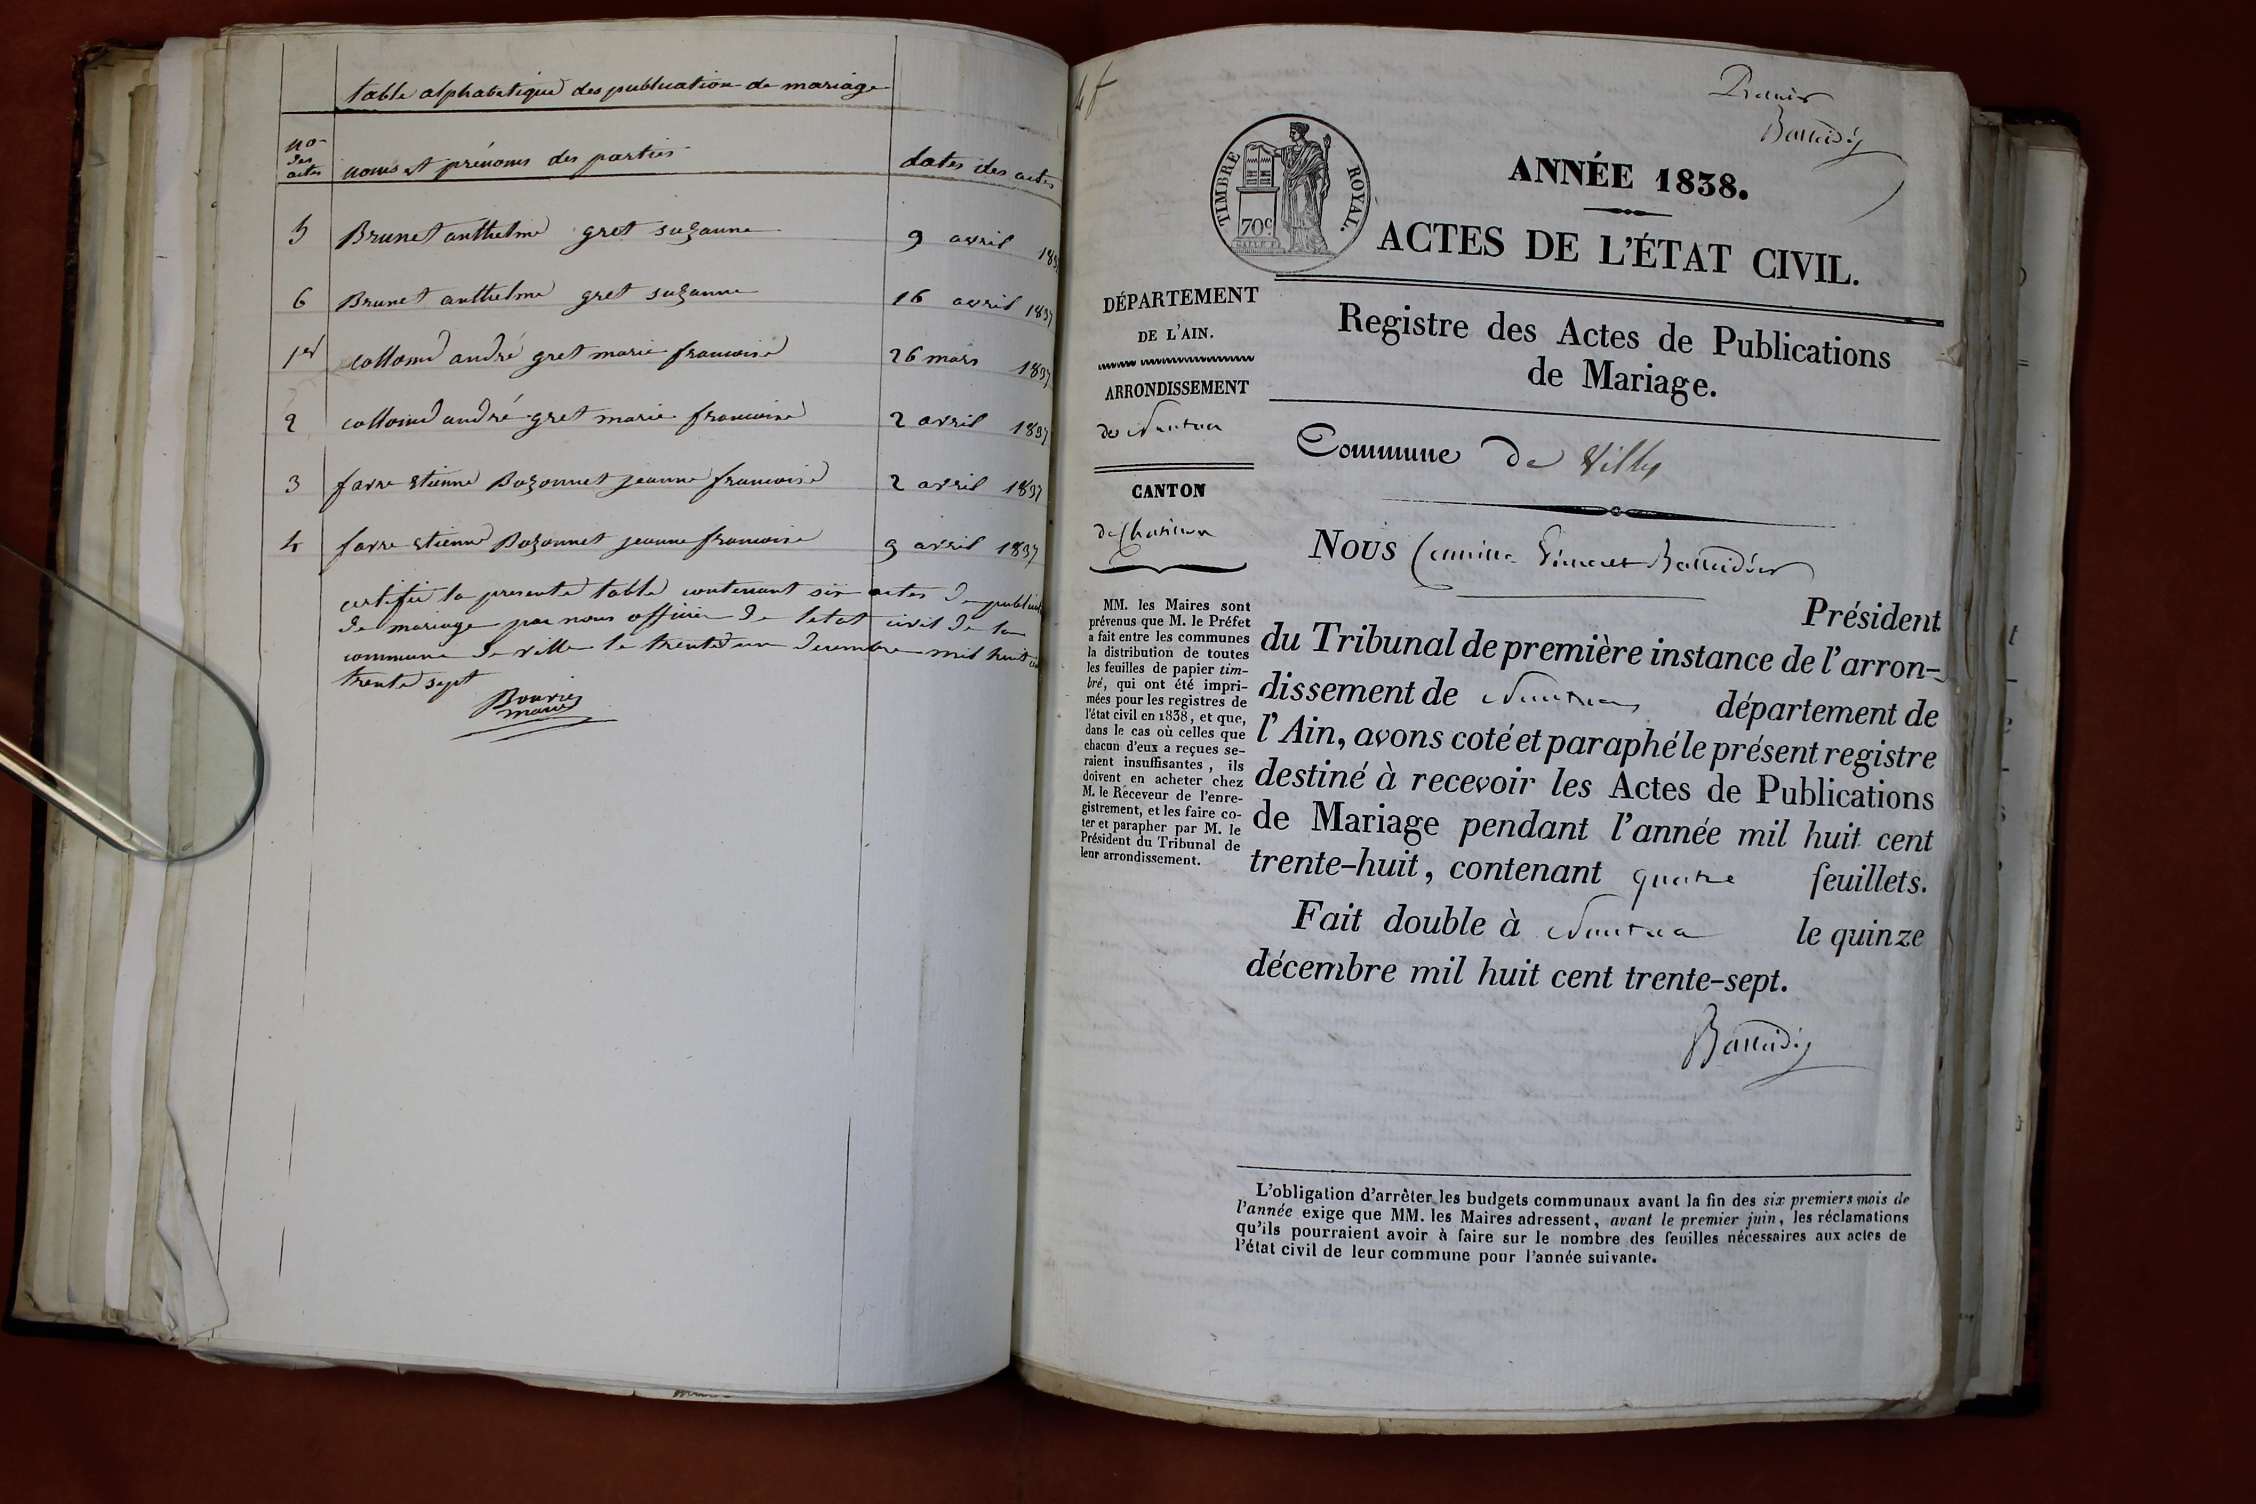 table alphabetique des publication de mariage
no des actes
noms et prénoms des parties
dates des actes
5 Brunet anthelme gret suzanne 9 avril 1837
6 Brunet anthelme gret suzanne 16 avril 1837
1er collomd andré gret marie francoise 26 mars 1837
2 collomd andré gret marie francoise 2 avril 1837
3 favre etienne Bozonnet jeanne francoise 2 avril 1837
4 favre etienne Bozonnet jeanne francoise 9 avril 1837
certifié la presente table contenant six actes de
de mariage par nous officier de letat civil de la
commune de ville le trente un decembre mil huit
trente sept
Bouvier
maire
ANNÉE 1838.
TIMBRE ROYAL.
70c
ACTES DE L'ÉTAT CIVIL.
DÉPARTEMENT
DE L'AIN.
ARRONDISSEMENT
de Nantua
CANTON
MM. les Maires sont
prévenus que M. le Préfet
a fait entre les communes
la distribution de toutes
les feuilles de papier tim-
bré, qui ont été impri-
mées pour les registres de
l'état civil en 1838, et que,
dans le cas où celles que
chacun d'eux a reçues se-
raient insuffisantes, ils
doivent en acheter chez
M. le Receveur de l'enre-
gistrement, et les faire co-
ter et parapher par M. le
Président du Tribunal de
leur arrondissement.
Registre des Actes de Publications
de Mariage.
Commune de Ville
Nous Camille
Président
du Tribunal de première instance de l'arron-
dissement de Nantua département de
l'Ain, avons coté et paraphé le présent registre
destiné à recevoir les Actes de Publications
de Mariage pendant l'année mil huit cent
trente-huit, contenant quatre feuillets.
Fait double à Nantua le quinze
décembre mil huit cent trente-sept.
L'obligation d'arrêter les budgets communaux avant la fin des six premiers mois de
l'année exige que MM. les Maires adressent, avant le premier juin, les réclamations
qu'ils pourraient avoir à faire sur le nombre des feuilles nécessaires aux actes de
l'état civil de leur commune pour l'année suivante.